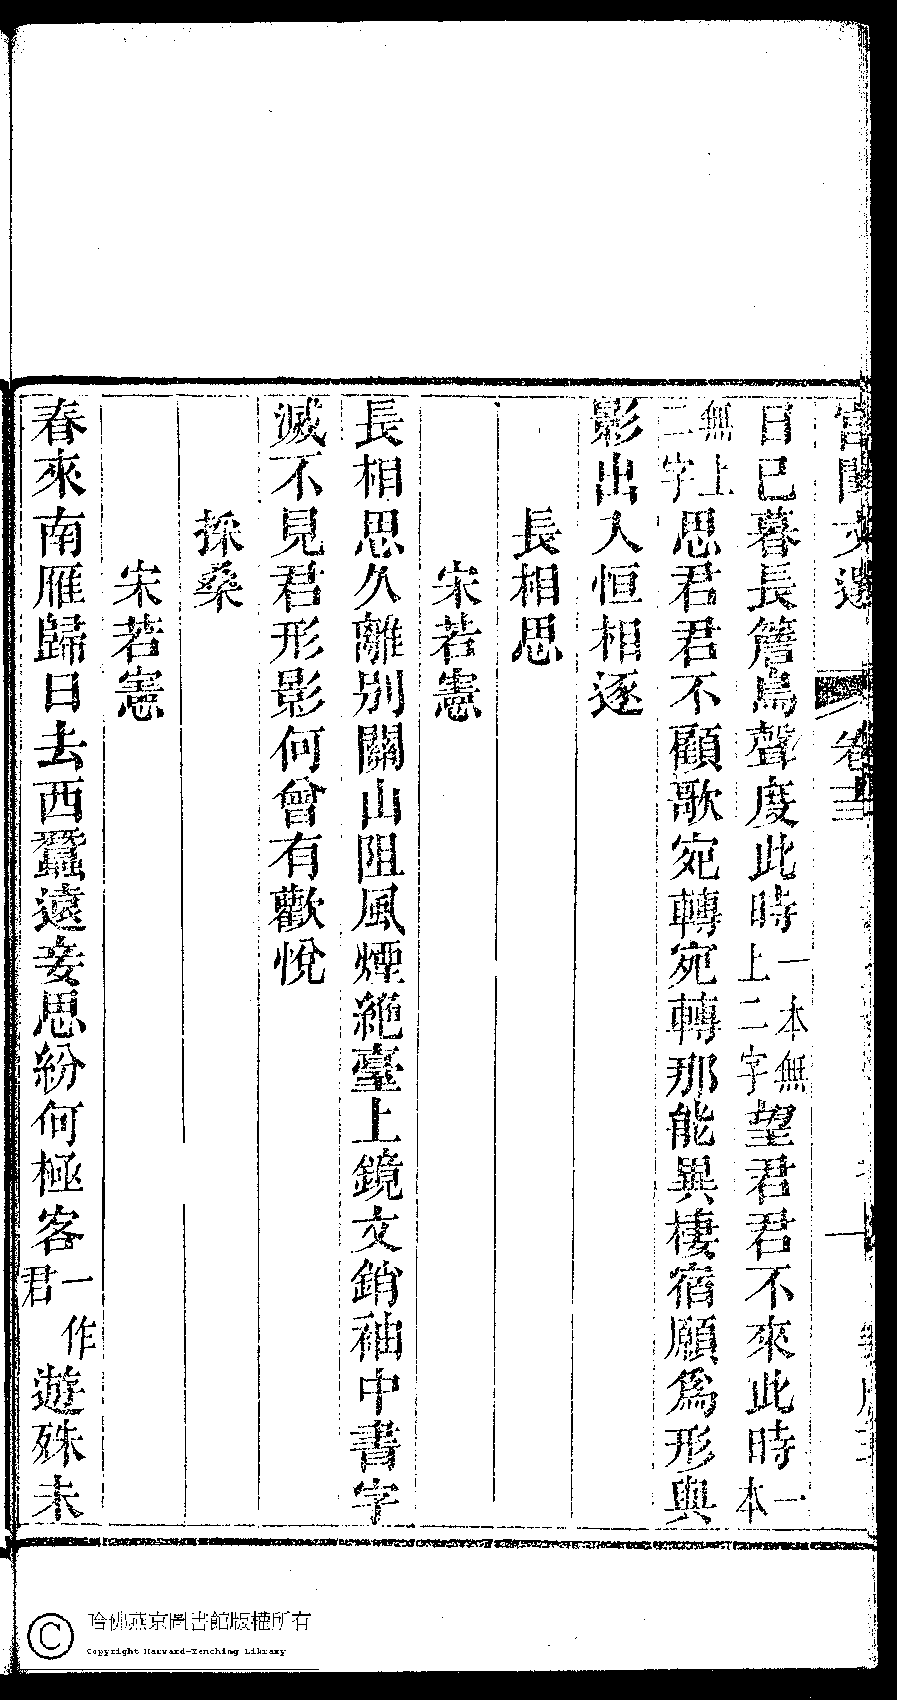 宮閨文選 卷二十三
日已暮長簷鳥聲度此時一本無上二字望君君不來此時一本
無上二字思君君不顧歌宛轉宛轉那能異棲宿願爲形與
影出入恒相逐
長相思
宋若憲
長相思久離別關山阻風煙絕臺上鏡文銷袖中書字
滅不見君形影何曾有歡悅
採桑
宋若憲
春來南雁歸日去西蠶遠妾思紛何極客一作君遊殊未
哈佛燕京圖書館版權所有
Copyright Harvard-Yenching Library